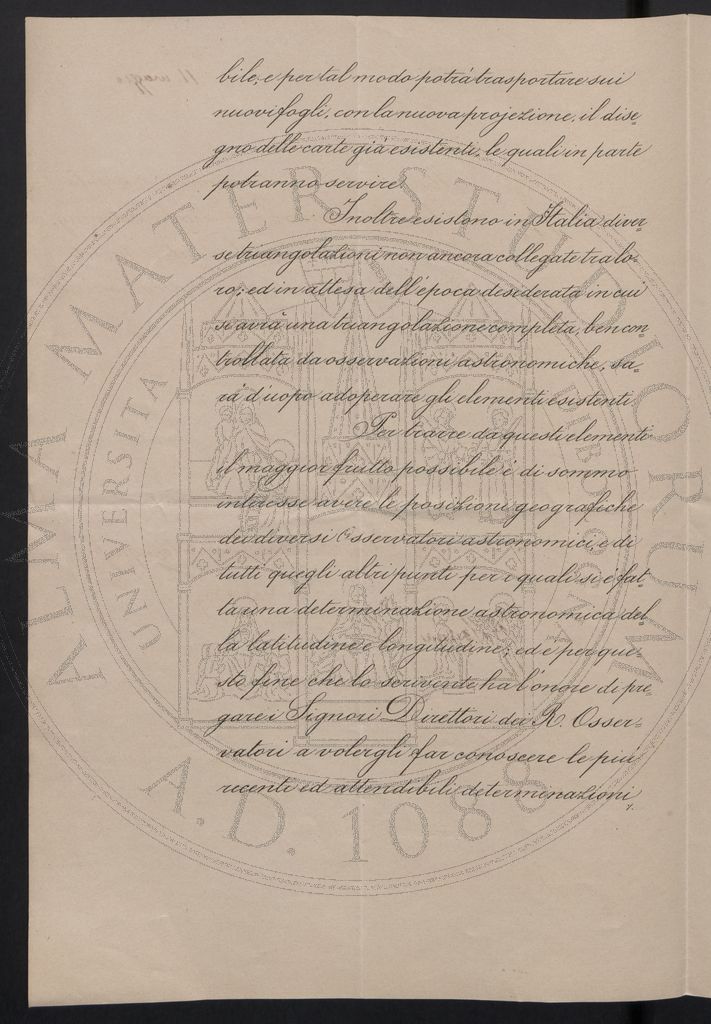 bile; e per tal modo potrà trasportare sui
nuovi fogli, con la nuova projezione, il dise-
gno delle carte già esistenti, le quali in parte
potranno servire.
Inoltre esistono in Italia diver-
se triangolazioni non ancora collegate tra lo-
ro; ed in attesa dell'epoca desiderata in cui
si avrà una triangolazione completa, ben con-
trollata da osservazioni astronomiche, sa-
rà d'uopo adoperare gli elementi esistenti.
Per trarre da questi elementi
il maggior frutto possibile è di sommo
interesse avere le posizioni geografiche
dei diversi Osservatori astronomici e di
tutti quegli altri punti per i quali si è fat-
ta una determinazione astronomica del-
la latitudine e longitudine; ed è per que-
sto fine che lo scrivente ha l'onore di pre-
gare i Signori Direttori dei R. Osser-
vatori a volergli far conoscere le più
recenti ed attendibili determinazioni
ALMA MATER STUDIORUM
UNIVERSITA
A.D. 1088